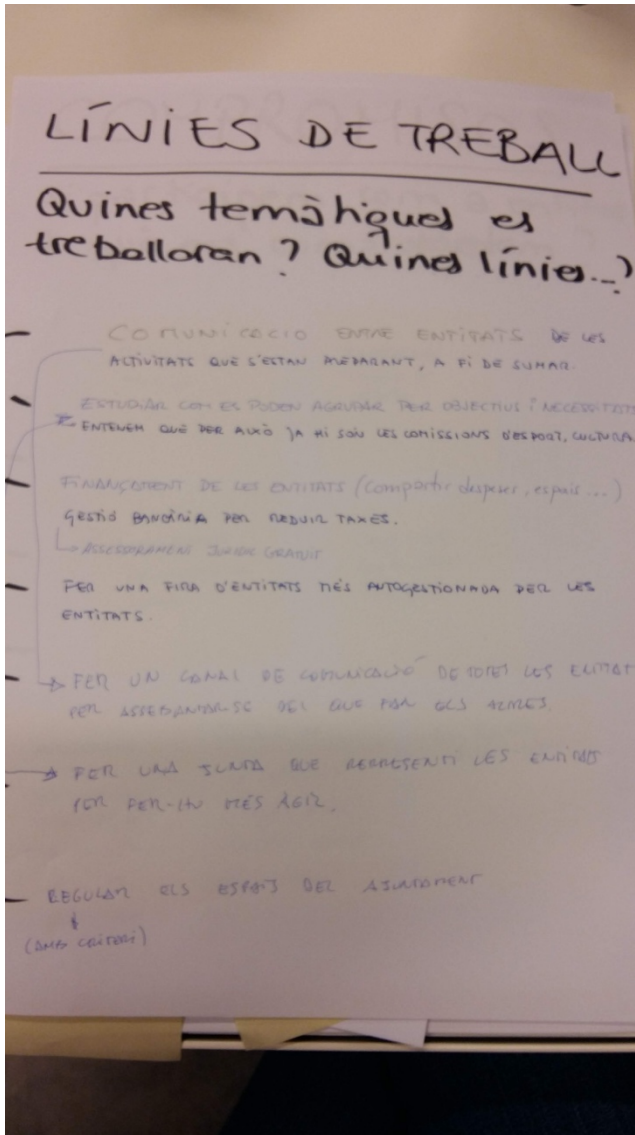 LÍNIES DE TREBALL
Quines temàtiques es
treballaran? Quines línies...?
COMUNICACIO ENTRE ENTITATS DE LES
ACTIVITATS QUE S'ESTAN PREPARANT, A FI DE SUMAR.
ESTUDIAR COM ES PODEN AGRUPAR PER OBJECTIUS I NECESSITATS
ENTENEM QUE PER AIXÒ JA HI SON LES COMISSIONS D'ESPORT, CULTURA
FINANÇAMENT DE LES ENTITATS (compartir despeses, espais...)
GESTIÓ BANCÀRIA PER REDUIR TAXES.
ASSESSORAMENT JURIDIC GRATUIT
FER UNA FIRA D'ENTITATS MÉS AUTOGESTIONADA PER LES
ENTITATS.
FER UN CANAL DE COMUNICACIÓ DE TOTES LES ENTITAT
PER ASSEBANTAR-SE DEL QUE FAN ELS ALTRES.
FER UNA JUNTA QUE REPRESENTI LES ENTITATS
PER FER-HO MÉS ÀGIL.
REGULAR ELS ESPAIS DEL AJUNTAMENT
(AMB CRITERI)